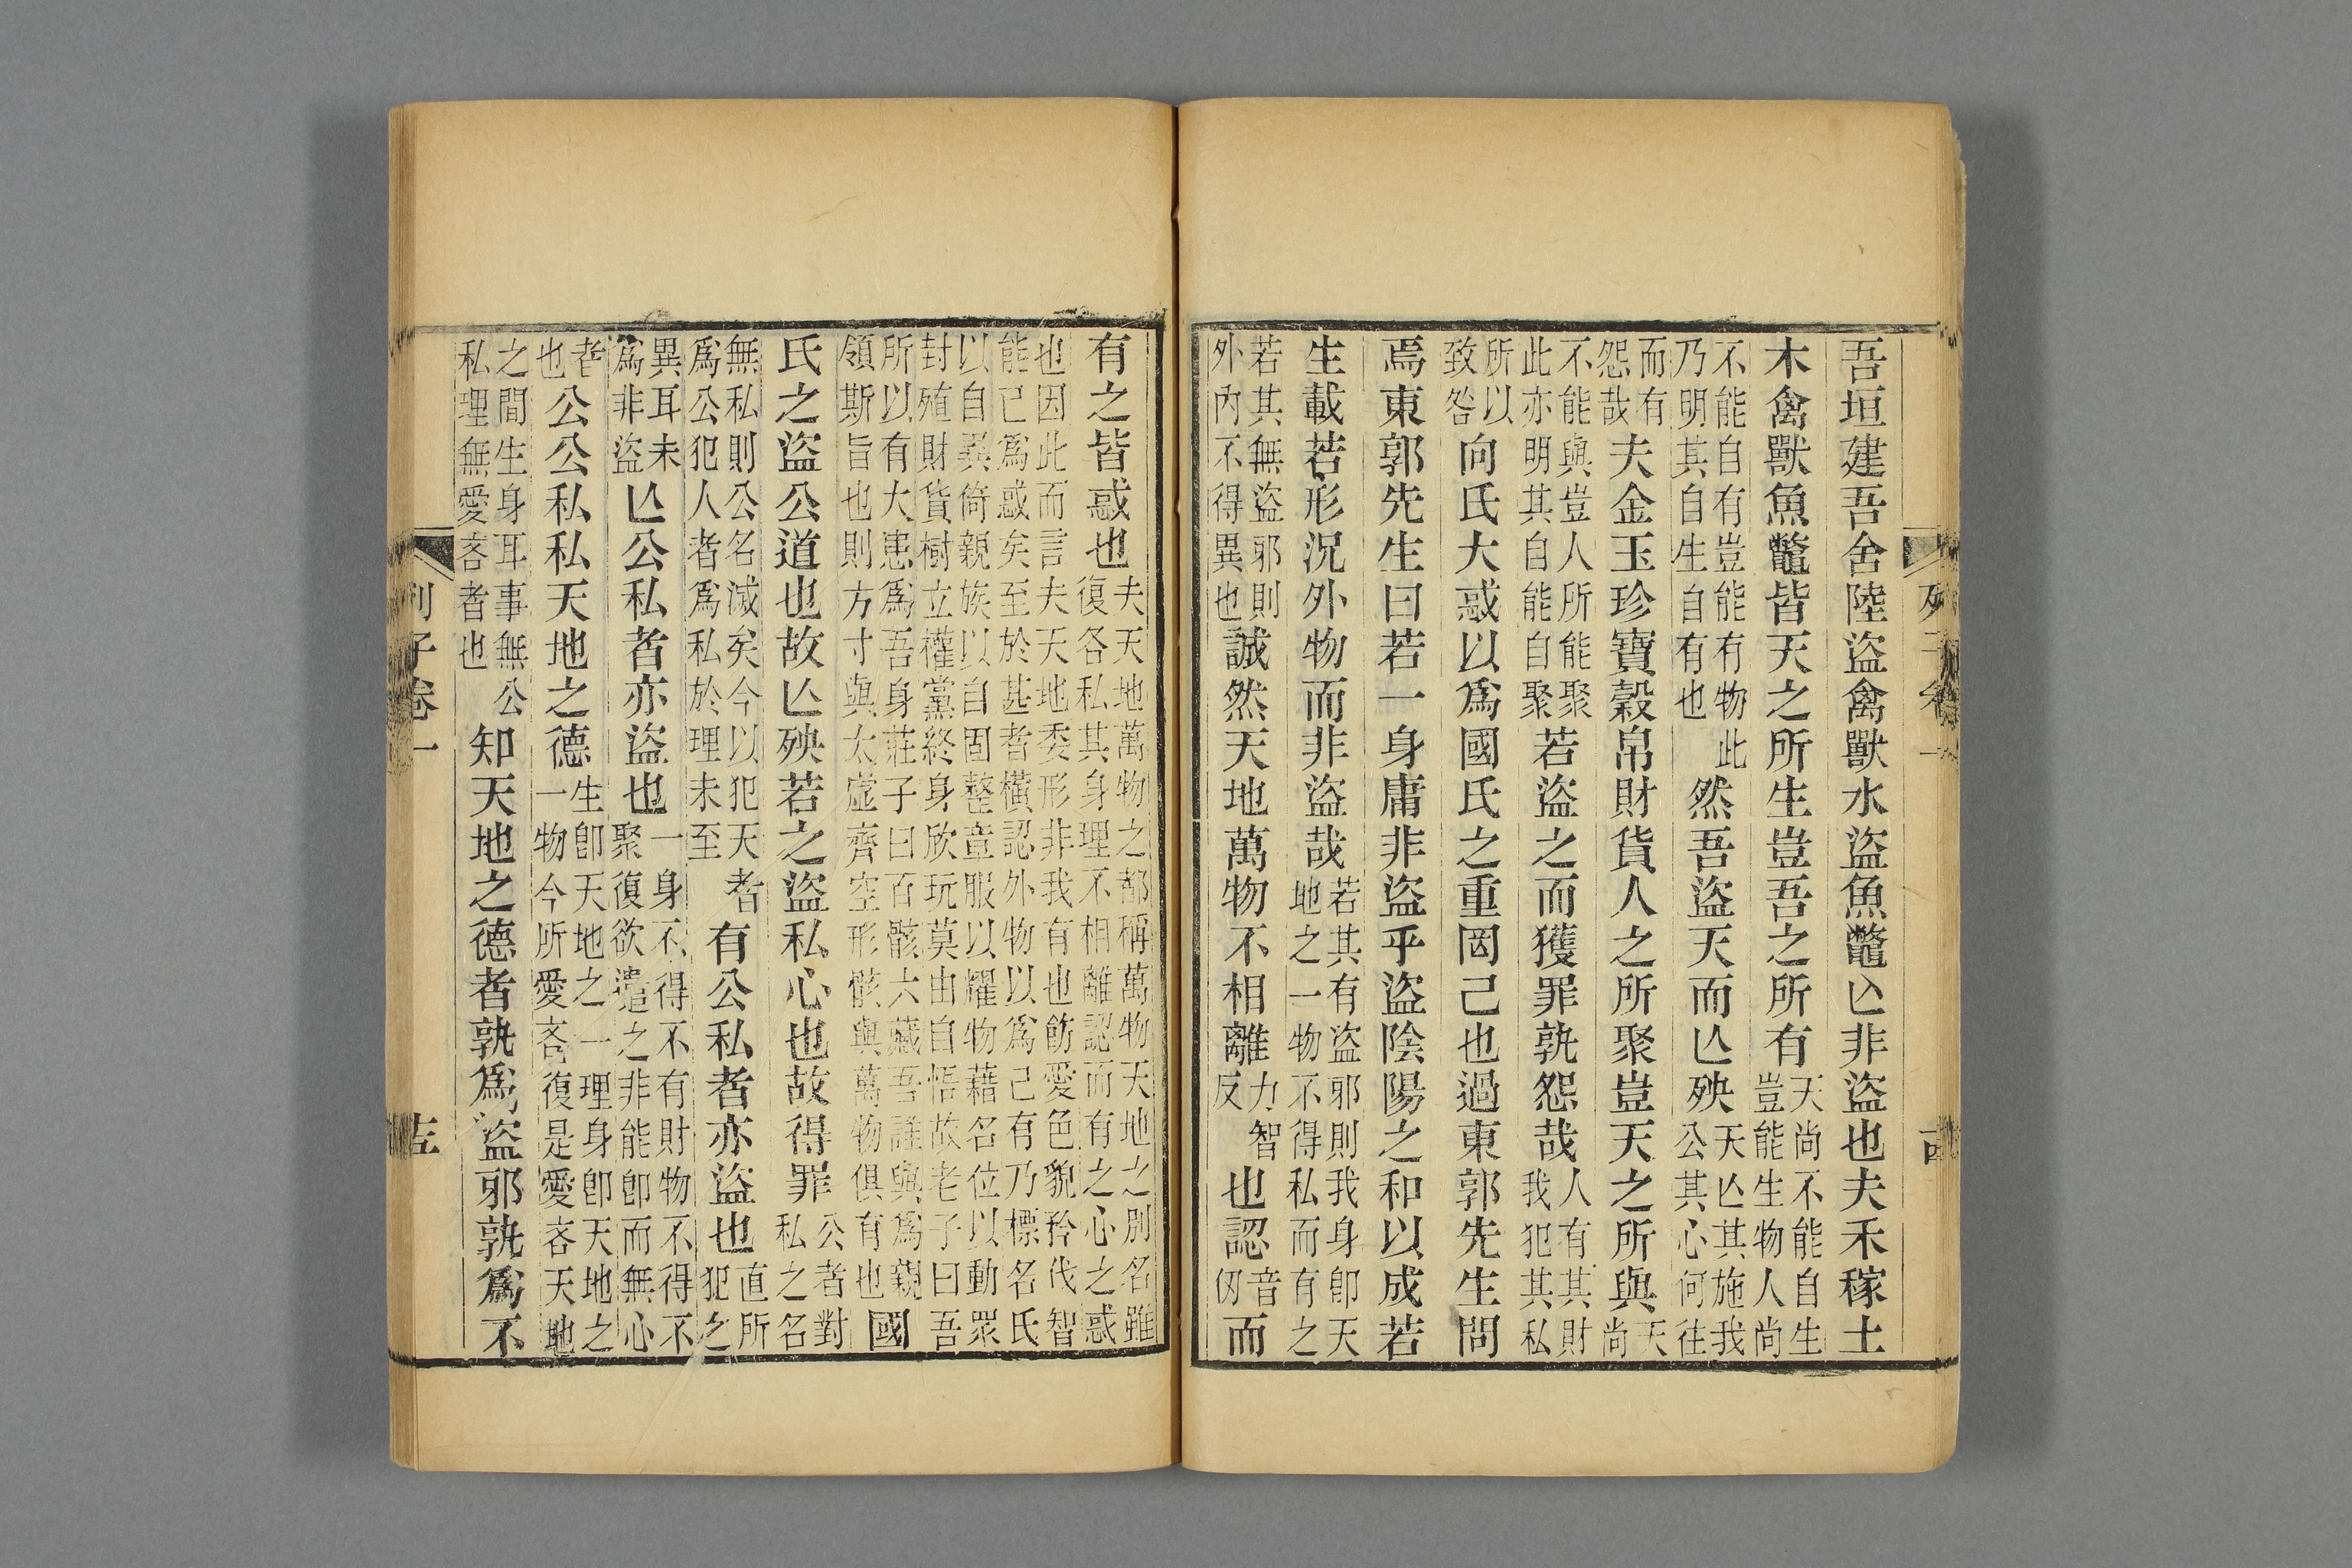 列子卷一
吾垣建吾舍陸盜禽獸水盜魚鼈亾非盜也夫禾稼土
木禽獸魚鼈皆天之所生豈吾之所有天尚不能自生豈能生物人尚
不能自有豈能有物此乃明其自生自有也然吾盜天而亾殃天亾其施我公其心何往
而有怨哉夫金玉珍寶穀帛財貨人之所聚豈天之所與天尚
不能與豈人所能聚此亦明其自能自聚若盜之而獲罪孰怨哉人有其財我犯其私
所以致咎向氏大惑以爲國氏之重罔己也過東郭先生問
焉東郭先生曰若一身庸非盜乎盜陰陽之和以成若
生載若形況外物而非盜哉若其有盜邪則我身卽天地之一物不得私而有之
若其無盜邪則外內不得異也誠然天地萬物不相離力智反也認音仞而
有之皆惑也夫天地萬物之都稱萬物天地之別名雖復各私其身理不相離認而有之心之惑
也因此而言夫天地委形非我有也飭愛色貌矜伐智能已爲惑矣至於甚者橫認外物以爲己有乃標名氏
以自異倚親族以自固整章服以耀物藉名位以動眾封殖財貨樹立權黨終身欣玩莫由自悟故老子曰吾
所以有大患爲吾身莊子曰百骸六藏吾誰與爲親領斯旨也則方寸與太虛齊空形骸與萬物俱有也國
氏之盜公道也故亾殃若之盜私心也故得罪公者對私之名
無私則公名滅矣今以犯天者爲公犯人者爲私於理未至有公私者亦盜也直所犯之
異耳未爲非盜亾公私者亦盜也一身不得不有財物不得不聚復欲遣之非能卽而無心
者也公公私私天地之德生卽天地之一理身卽天地之一物今所愛吝復是愛吝天地
之間生身耳事無公私理無愛吝者也知天地之德者孰爲盜邪孰爲不
列子卷一